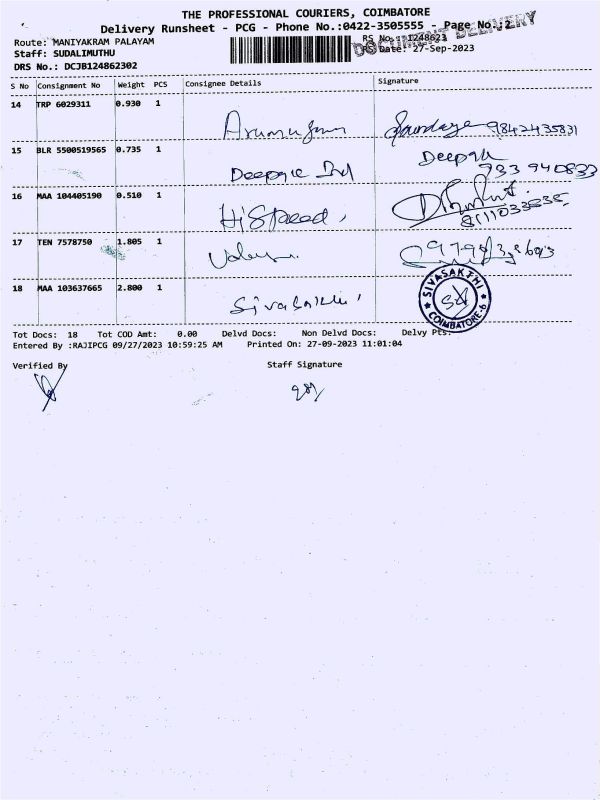 THE PROFESSIONAL COURIERS, COIMBATORE
Delivery Runsheet - PCG - Phone No.:0422-3505555 - Page No.:2
DOCUMENT DELIVERY
Route: MANIYAKRAM PALAYAM RS No.: 1248623
Staff: SUDALIMUTHU RS Date: 27-Sep-2023
DRS No.: DCJB124862302
S No Consignment No Weight PCS Consignee Details Signature
14 TRP 6029311 0.930 1
Arumugam 9842435831
15 BLR 5500519565 0.735 1 Deepak
Deepak Ind 733 940833
16 MAA 104405190 0.510 1
HiSpeed,
17 TEN 7578750 1.805 1
18 MAA 103637665 2.800 1 SIVASAKTHI
Sivasakthi COIMBATORE-6
Tot Docs: 18 Tot COD Amt: 0.00 Delvd Docs: Non Delvd Docs: Delvy Pts:
Entered By :RAJIPCG 09/27/2023 10:59:25 AM Printed On: 27-09-2023 11:01:04
Verified By Staff Signature